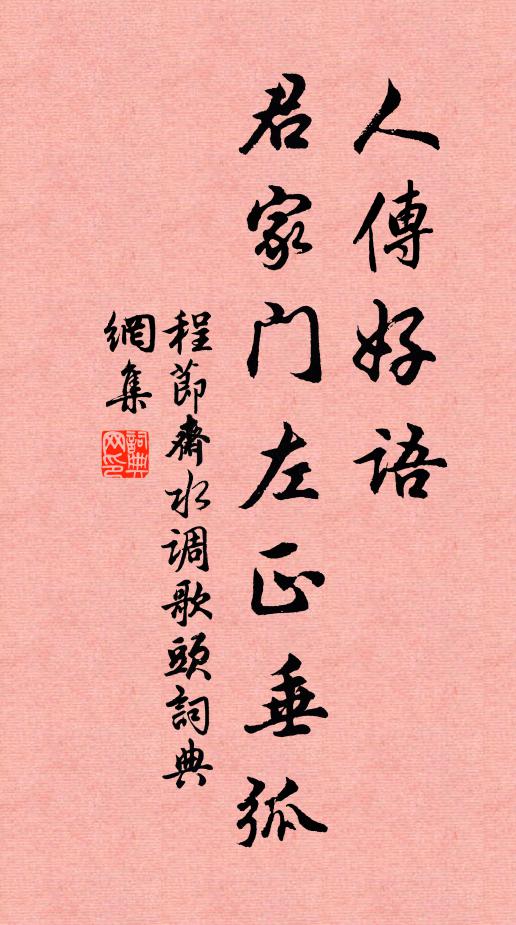 人傳好語
君家門左正垂弧
程節齋水调歌頭詞典
網集
詞典网印